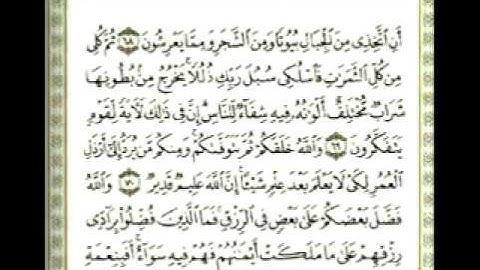 أَنِ ٱتَّخِذِى مِنَ ٱلْجِبَالِ بُيُوتًا وَمِنَ ٱلشَّجَرِ وَمِمَّا يَعْرِشُونَ ٦٨ ثُمَّ كُلِى
مِن كُلِّ ٱلثَّمَرَٰتِ فَٱسْلُكِى سُبُلَ رَبِّكِ ذُلُلًا ۚ يَخْرُجُ مِنۢ بُطُونِهَا
شَرَابٌ مُّخْتَلِفٌ أَلْوَٰنُهُۥ فِيهِ شِفَآءٌ لِّلنَّاسِ ۗ إِنَّ فِى ذَٰلِكَ لَءَايَةً لِّقَوْمٍ
يَتَفَكَّرُونَ ٦٩ وَٱللَّهُ خَلَقَكُمْ ثُمَّ يَتَوَفَّىٰكُمْ ۚ وَمِنكُم مَّن يُرَدُّ إِلَىٰٓ أَرْذَلِ
ٱلْعُمُرِ لِكَىْ لَا يَعْلَمَ بَعْدَ عِلْمٍ شَيْـًٔا ۚ إِنَّ ٱللَّهَ عَلِيمٌ قَدِيرٌ ٧٠ وَٱللَّهُ
فَضَّلَ بَعْضَكُمْ عَلَىٰ بَعْضٍ فِى ٱلرِّزْقِ ۚ فَمَا ٱلَّذِينَ فُضِّلُوا۟ بِرَآدِّى
رِزْقِهِمْ عَلَىٰ مَا مَلَكَتْ أَيْمَٰنُهُمْ فَهُمْ فِيهِ سَوَآءٌ ۚ أَفَبِنِعْمَةِ